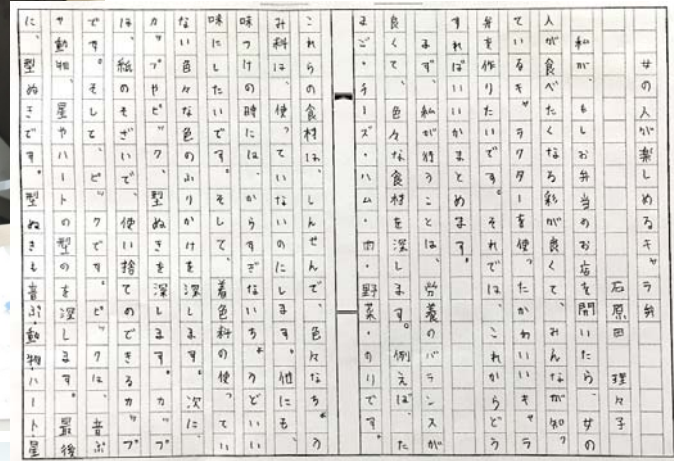 女の人が楽しめるキャラ弁
石原田 理々子
私が、もしお弁当のお店を開いたら、女の
人が食べたくなる彩が良くて、みんなが知っ
ているキャラクターを使ったかわいいキャラ
弁を作りたいです。それでは、これからどう
すればいいかまとめます。
まず、私が行うことは、労養のバランスが
良くて、色々な食材を深します。例えば、た
まご・チーズ・ハム・肉・野菜・のりです。
これらの食材は、しんせんで、色々なちょう
み料は、使っていないのにします。他にも、
味つけの時には、からすぎないちょうどいい
味にしたいです。そして、着色料の使ってい
ない色々な色のふりかけを深します。次に、
カップやピック、型ぬきを深します。カップ
は、紙のそざいで、使い捨てのできるカップ
です。そして、ピックです。ピックは、音ぷ
や動物、星やハートの型のを深します。最後
に、型ぬきです。型ぬきも音ぷ・動物・ハート・星